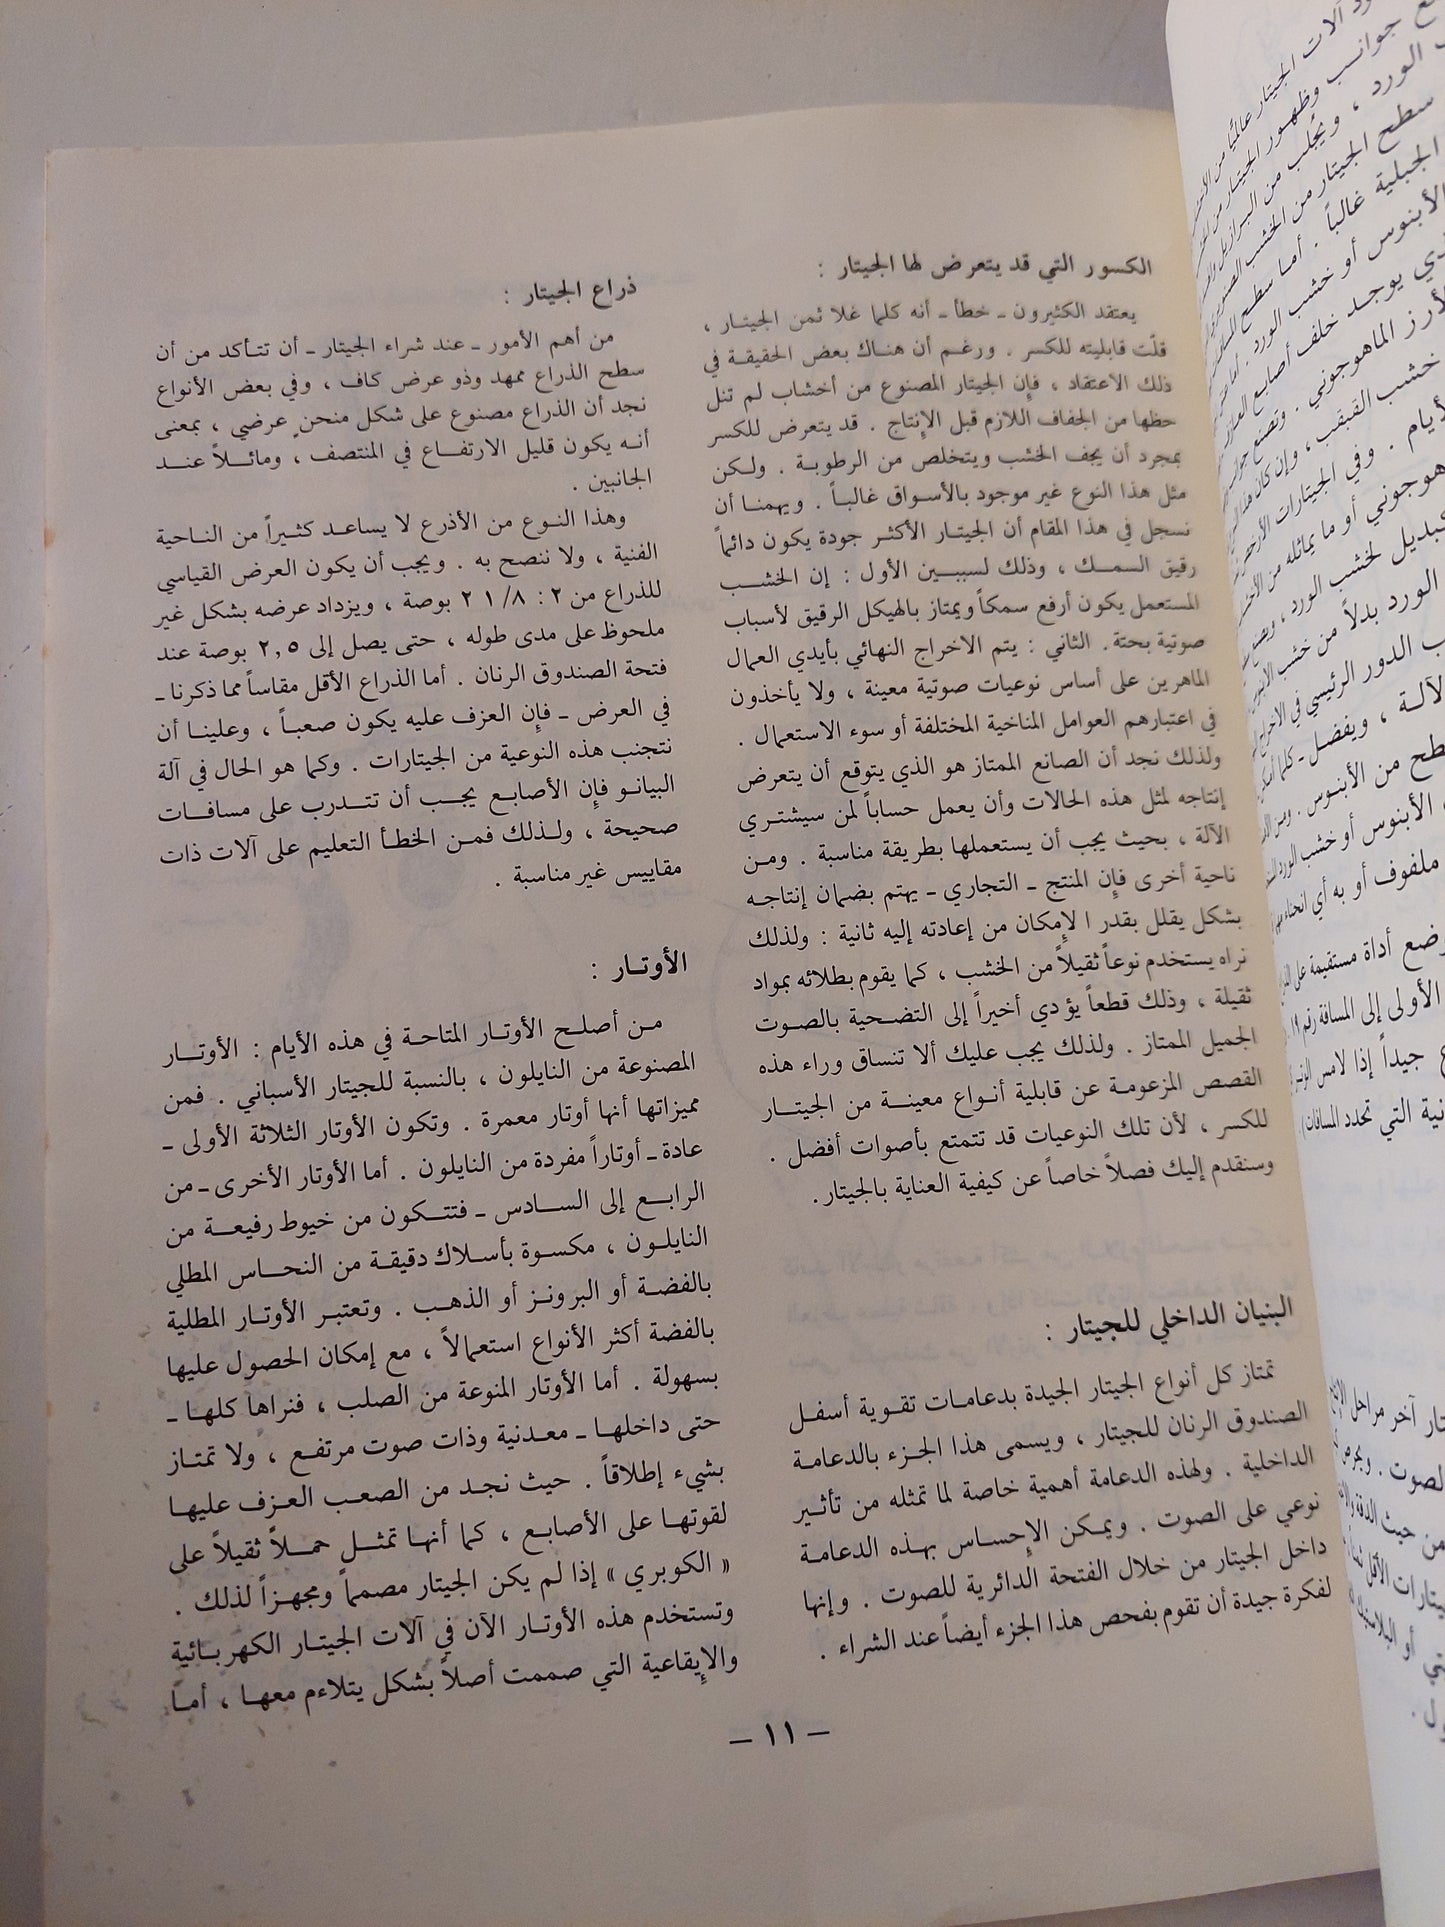 الكسور التي قد يتعرض لها الجيتار :
يعتقد الكثيرون ـ خطأ ـ أنه كلما غلا ثمن الجيتـار ،
قلّت قابليته للكسر . ورغـم أن هنـاك بعض الحقيقـة في
ذلك الاعتقاد ، فإن الجيتار المصنوع من أخشاب لم تنل
حظها من الجفاف اللازم قبل الإنتاج . قد يتعرض للكسر
بمجرد أن يجف الخشب ويتخلص من الرطوبـة . ولـكن
مثل هذا النوع غير موجود بالأسـواق غالبـاً . ويهمنـا أن
نسجل في هذا المقام أن الجيتـار الأكثـر جودة يكون دائماً
رقيق السمـك ، وذلك لسببـين الأول : إن الخشـب
المستعمل يكون أرفع سمكاً ويمتاز بالهيكل الرقيق لأسباب
صوتية بحتة. الثاني : يتم الاخراج النهائي بأيدي العمال
الماهرين على أساس نوعيات صوتية معينة ، ولا يأخذون
في اعتبارهم العوامل المناخية المختلفة أو سوء الاستعمال .
ولذلك نجد أن الصانع الممتاز هو الذي يتوقع أن يتعرض
إنتاجه لمثل هذه الحالات وأن يعمل حساباً لمن سيشتـري
الآلة ، بحيث يجب أن يستعملها بطريقة مناسبة . ومـن
ناحية أخرى فإن المنتج ـ التجاري ـ يهتم بضمان إنتاجـه
بشكل يقلل بقدر الإمكان من إعادته إليه ثانية : ولذلك
نراه يستخدم نوعاً ثقيلاً من الخشب ، كما يقوم بطلائه بمواد
ثقيلة ، وذلك قطعاً يؤدي أخيراً إلى التضـحية بالصـوت
الجميل الممتاز . ولذلك يجب عليك ألا تنساق وراء هذه
القصص المزعومـة عن قابلية أنـواع معينـة من الجيتـار
للكسر ، لأن تلك النوعيات قد تتمتع بأصوات أفضل .
وسنقدم إليك فصلاً خاصاً عن كيفية العناية بالجيتار.
البنيان الداخلي للجيتار :
تمتاز كل أنواع الجيتار الجيدة بدعامـات تقـوية أسفـل
الصندوق الرنان للجيتار ، ويسمى هذا الجـزء بالدعامـة
الداخلية . ولهذه الدعامة أهمية خاصة لما تمثله من تأثـير
نوعي على الصوت . ويمـكن الإحسـاس بهـذه الدعامـة
داخل الجيتار من خلال الفتحة الدائرية للصوت . وإنها
لفكرة جيدة أن تقوم بفحص هذا الجزء أيضاً عند الشراء .
ذراع الجيتار :
من أهم الأمور ـ عند شراء الجيتار ـ أن تتـأكد من أن
سطح الذراع ممهد وذو عرض كاف ، وفي بعض الأنواع
نجد أن الذراع مصنوع على شكل منحنٍ عرضي ، بمعنى
أنـه يكون قليل الارتفـاع في المنتصف ، ومائـلاً عنـد
الجانبين .
وهذا النـوع من الأذرع لا يساعـد كثـيراً من النـاحية
الفنية ، ولا ننصح به . ويجب أن يكون العرض القياسي
للذراع من ٢ : ١/٨ ٢ بوصة ، ويزداد عرضه بشكل غير
ملحوظ على مدى طوله ، حتى يصل إلى ٢,٥ بوصة عند
فتحة الصندوق الرنان . أما الذراع الأقل مقاساً مما ذكرنا ـ
في العرض ـ فإن العزف عليه يكون صعبـاً ، وعلينـا أن
نتجنب هذه النوعية من الجيتارات . وكما هو الحال في آلة
البيانـو فإن الأصابـع يجـب أن تتـدرب على مسافـات
صحيحة ، ولـذلك فمـن الخطـأ التعليم على آلات ذات
مقاييس غير مناسبة .
الأوتـار :
مـن أصلـح الأوتـار المتاحـة في هذه الأيام : الأوتـار
المصنوعة من النايلون ، بالنسبة للجيتار الأسباني . فمن
مميزاتها أنها أوتار معمرة . وتكون الأوتار الثلاثة الأولى ـ
عادة ـ أوتاراً مفردة من النايلون . أما الأوتار الأخرى ـ من
الرابـع إلى السـادس ـ فتتـكون من خيوط رفيعـة من
النايلـون ، مكسوة بأسـلاك دقيقـة من النحـاس المطلي
بالفضـة أو البرونـز أو الذهـب . وتعتبـر الأوتـار المطلية
بالفضة أكثر الأنواع استعمالاً ، مع إمكان الحصول عليها
بسهولة . أما الأوتار المنوعة من الصلب ، فنراها كلهـا ـ
حتى داخلهـا ـ معـدنية وذات صوت مرتفـع ، ولا تمتـاز
بشيء إطلاقاً . حيث نجـد من الصعـب العـزف عليهـا
لقوتهـا على الأصابـع ، كما أنهـا تمثـل حمـلاً ثقيلاً على
« الكوبري » إذا لم يكن الجيتار مصمماً ومجهـزاً لذلك .
وتستخدم هذه الأوتـار الآن في آلات الجيتـار الكهربـائية
والإيقاعية التي صممت أصلاً بشكل يتلاءم معهـا ، أمـا
ـ ١١ ـ